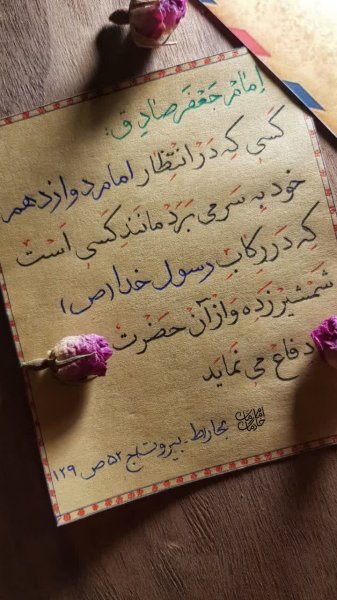 اِمامِ جَعفَرِ صادِق:
کَسی کِه دَر اِنتِظار امام دوازدهم
خود بِه سَر می بَرَد مانَندِ کَسی اَست
کِه دَر رِکابِ رسول خدا (ص)
شَمشیر زَده وَ از آن حَضرَت
دِفاع می نَماید
بحار ط - بیروت ج ۵۲ ص ۱۲۹